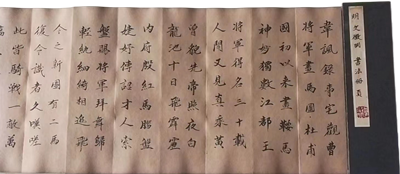 明 文徵明 書法
韋諷錄事宅觀曹
將軍畫馬圖杜甫
國初以來畫鞍馬
神妙獨數江都王
將軍得名三十載
人間又見真乘黃
曾貌先帝照夜白
龍池十日飛霹靂
內府殷紅馬腦盤
婕妤傳詔才人索
盤賜將軍拜舞歸
輕紈細綺相追飛
今之新圖有二馬
復令識者久嘆嗟
此皆騎戰一敵萬